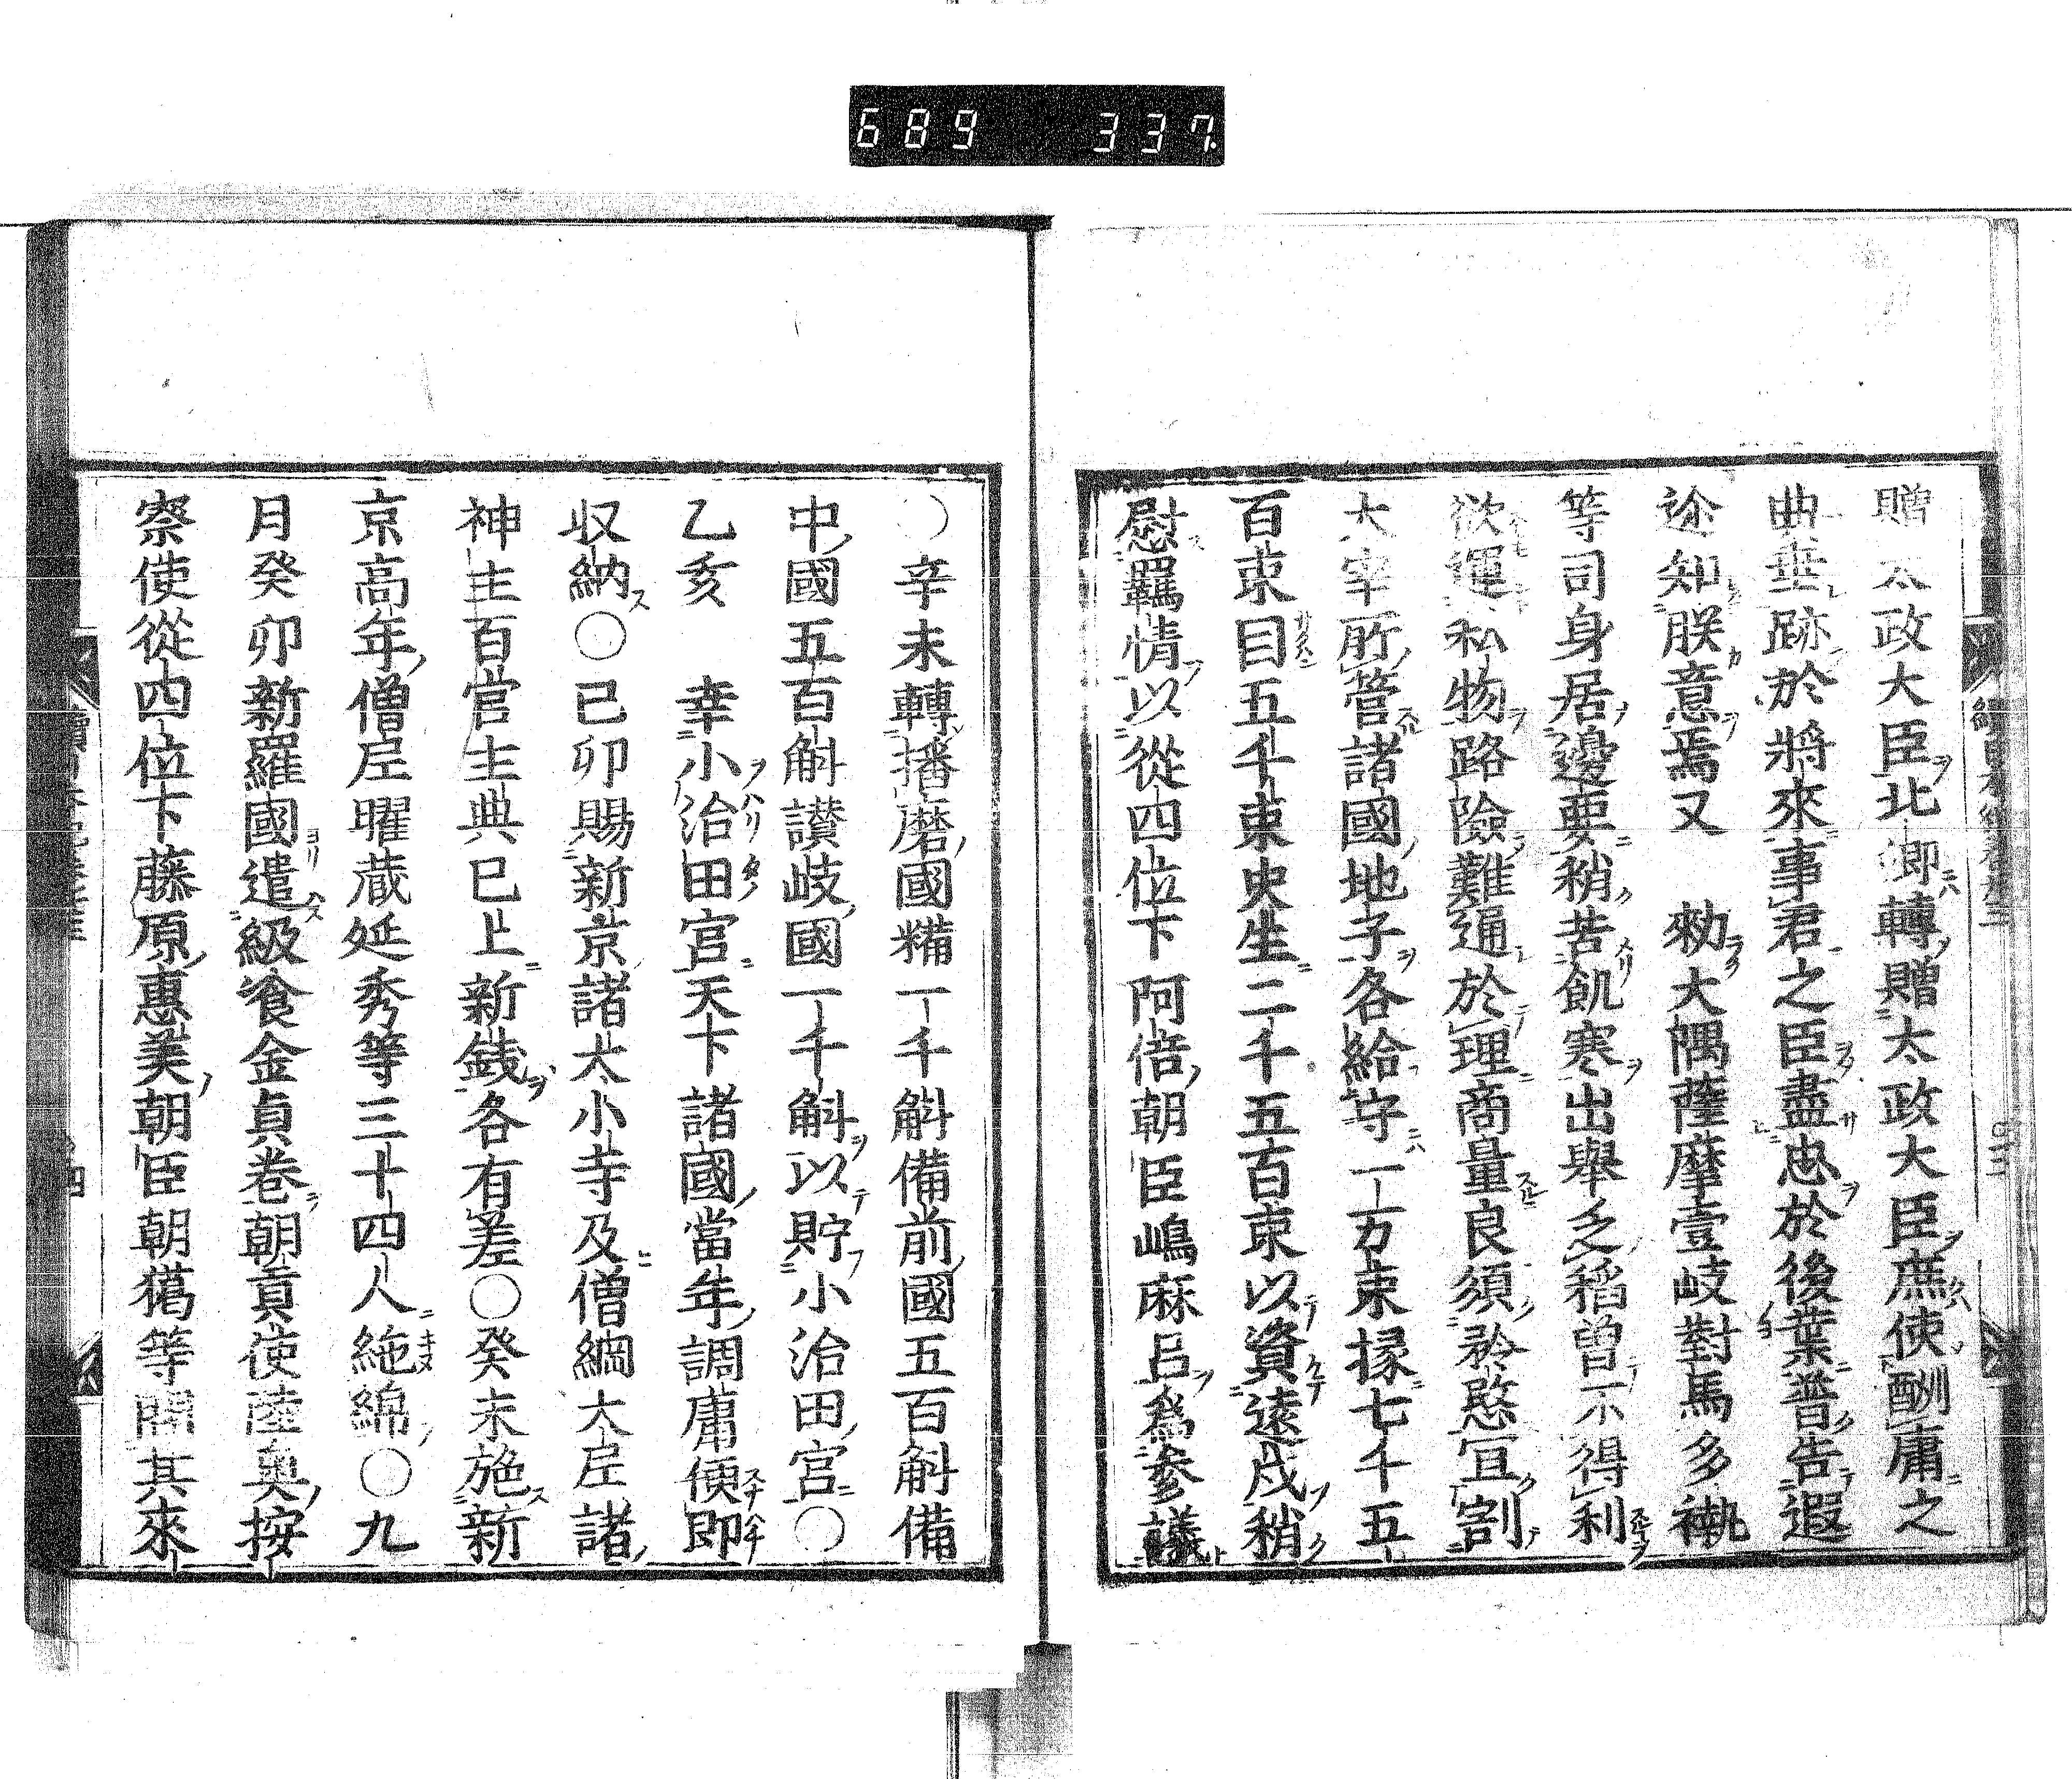 689 337
贈太政大臣北卿轉贈太政大臣庶使酬庸之
典垂跡於將來事君之臣盡忠於後葉普告遐
迩知朕意焉又 勅大隅薩摩壹岐對馬多褹
等司身居邊要稍苦飢寒出舉乏稻曾不得利
欲運私物路險難通於理商量良須矜愍宜割
大宰所管諸國地子各給守一万束掾七千五
百束目五千束史生二千五百束以資遠戍稍
慰羈情以從四位下阿倍朝臣嶋麻呂爲參議
〇辛未轉播磨國糒一千斛備前國五百斛備
中國五百斛讃岐國一千斛以貯小治田宮〇
乙亥 幸小治田宮天下諸國當年調庸便即
収納〇己卯賜新京諸大小寺及僧綱大尼諸
神主百官主典已上新銭各有差〇癸未施新
京高年僧尼曜蔵延秀等三十四人絁綿〇九
月癸卯新羅國遣級飡金貞巻朝貢使陸奥按
察使從四位下藤原惠美朝臣朝獦等問其來